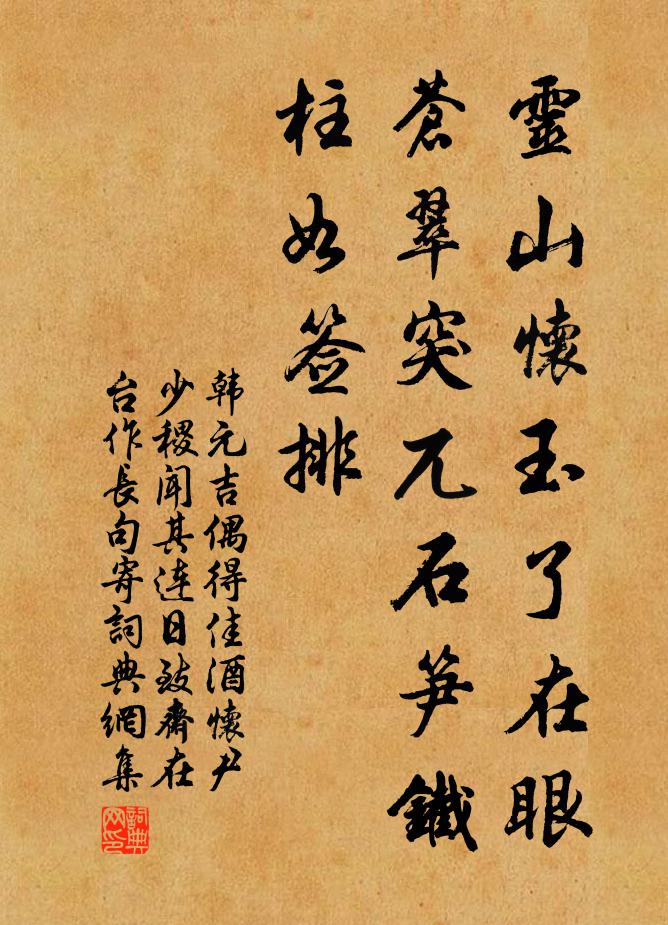 靈山懷玉了在眼
蒼翠突兀石笋鐵
柱如签排
韩元吉偶得佳酒懷尹
少稷闻其连日致齋在
台作長句寄詞典網集
詞典网印